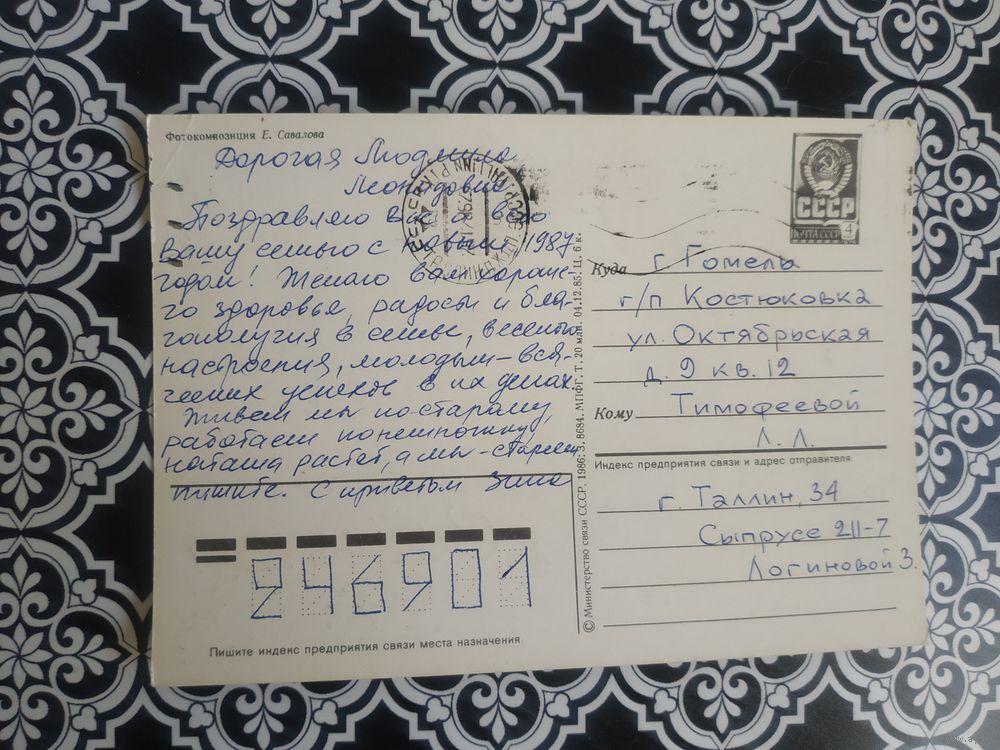 Фотокомпозиция Е. Савалова
Дорогая Людмила
Леонидовна
Поздравляю Вас и всю
вашу семью с Новым 1987
годом! Желаю вам хороше-
го здоровье, радости и бла-
гополучия в семье, веселого
настроения, молодым - вся-
ческих успехов в их делах.
Живем мы по-старому,
работаем понемножку,
Наташа растет, а мы - стареем
пишите. С приветом Зина
Пишите индекс предприятия связи места назначения
246901
© Министерство связи СССР. 1986. З. 8684. МПФГ. Т. 20 млн. 04.12.85. Ц. 6 к.
СССР
ПОЧТА СССР 4
Куда г. Гомель
г/п Костюковка
ул. Октябрьская
д. 9 кв. 12
Кому Тимофеевой
Л. Л.
Индекс предприятия связи и адрес отправителя
г. Таллин, 34
Сыпрусе 211-7
Логиновой З.